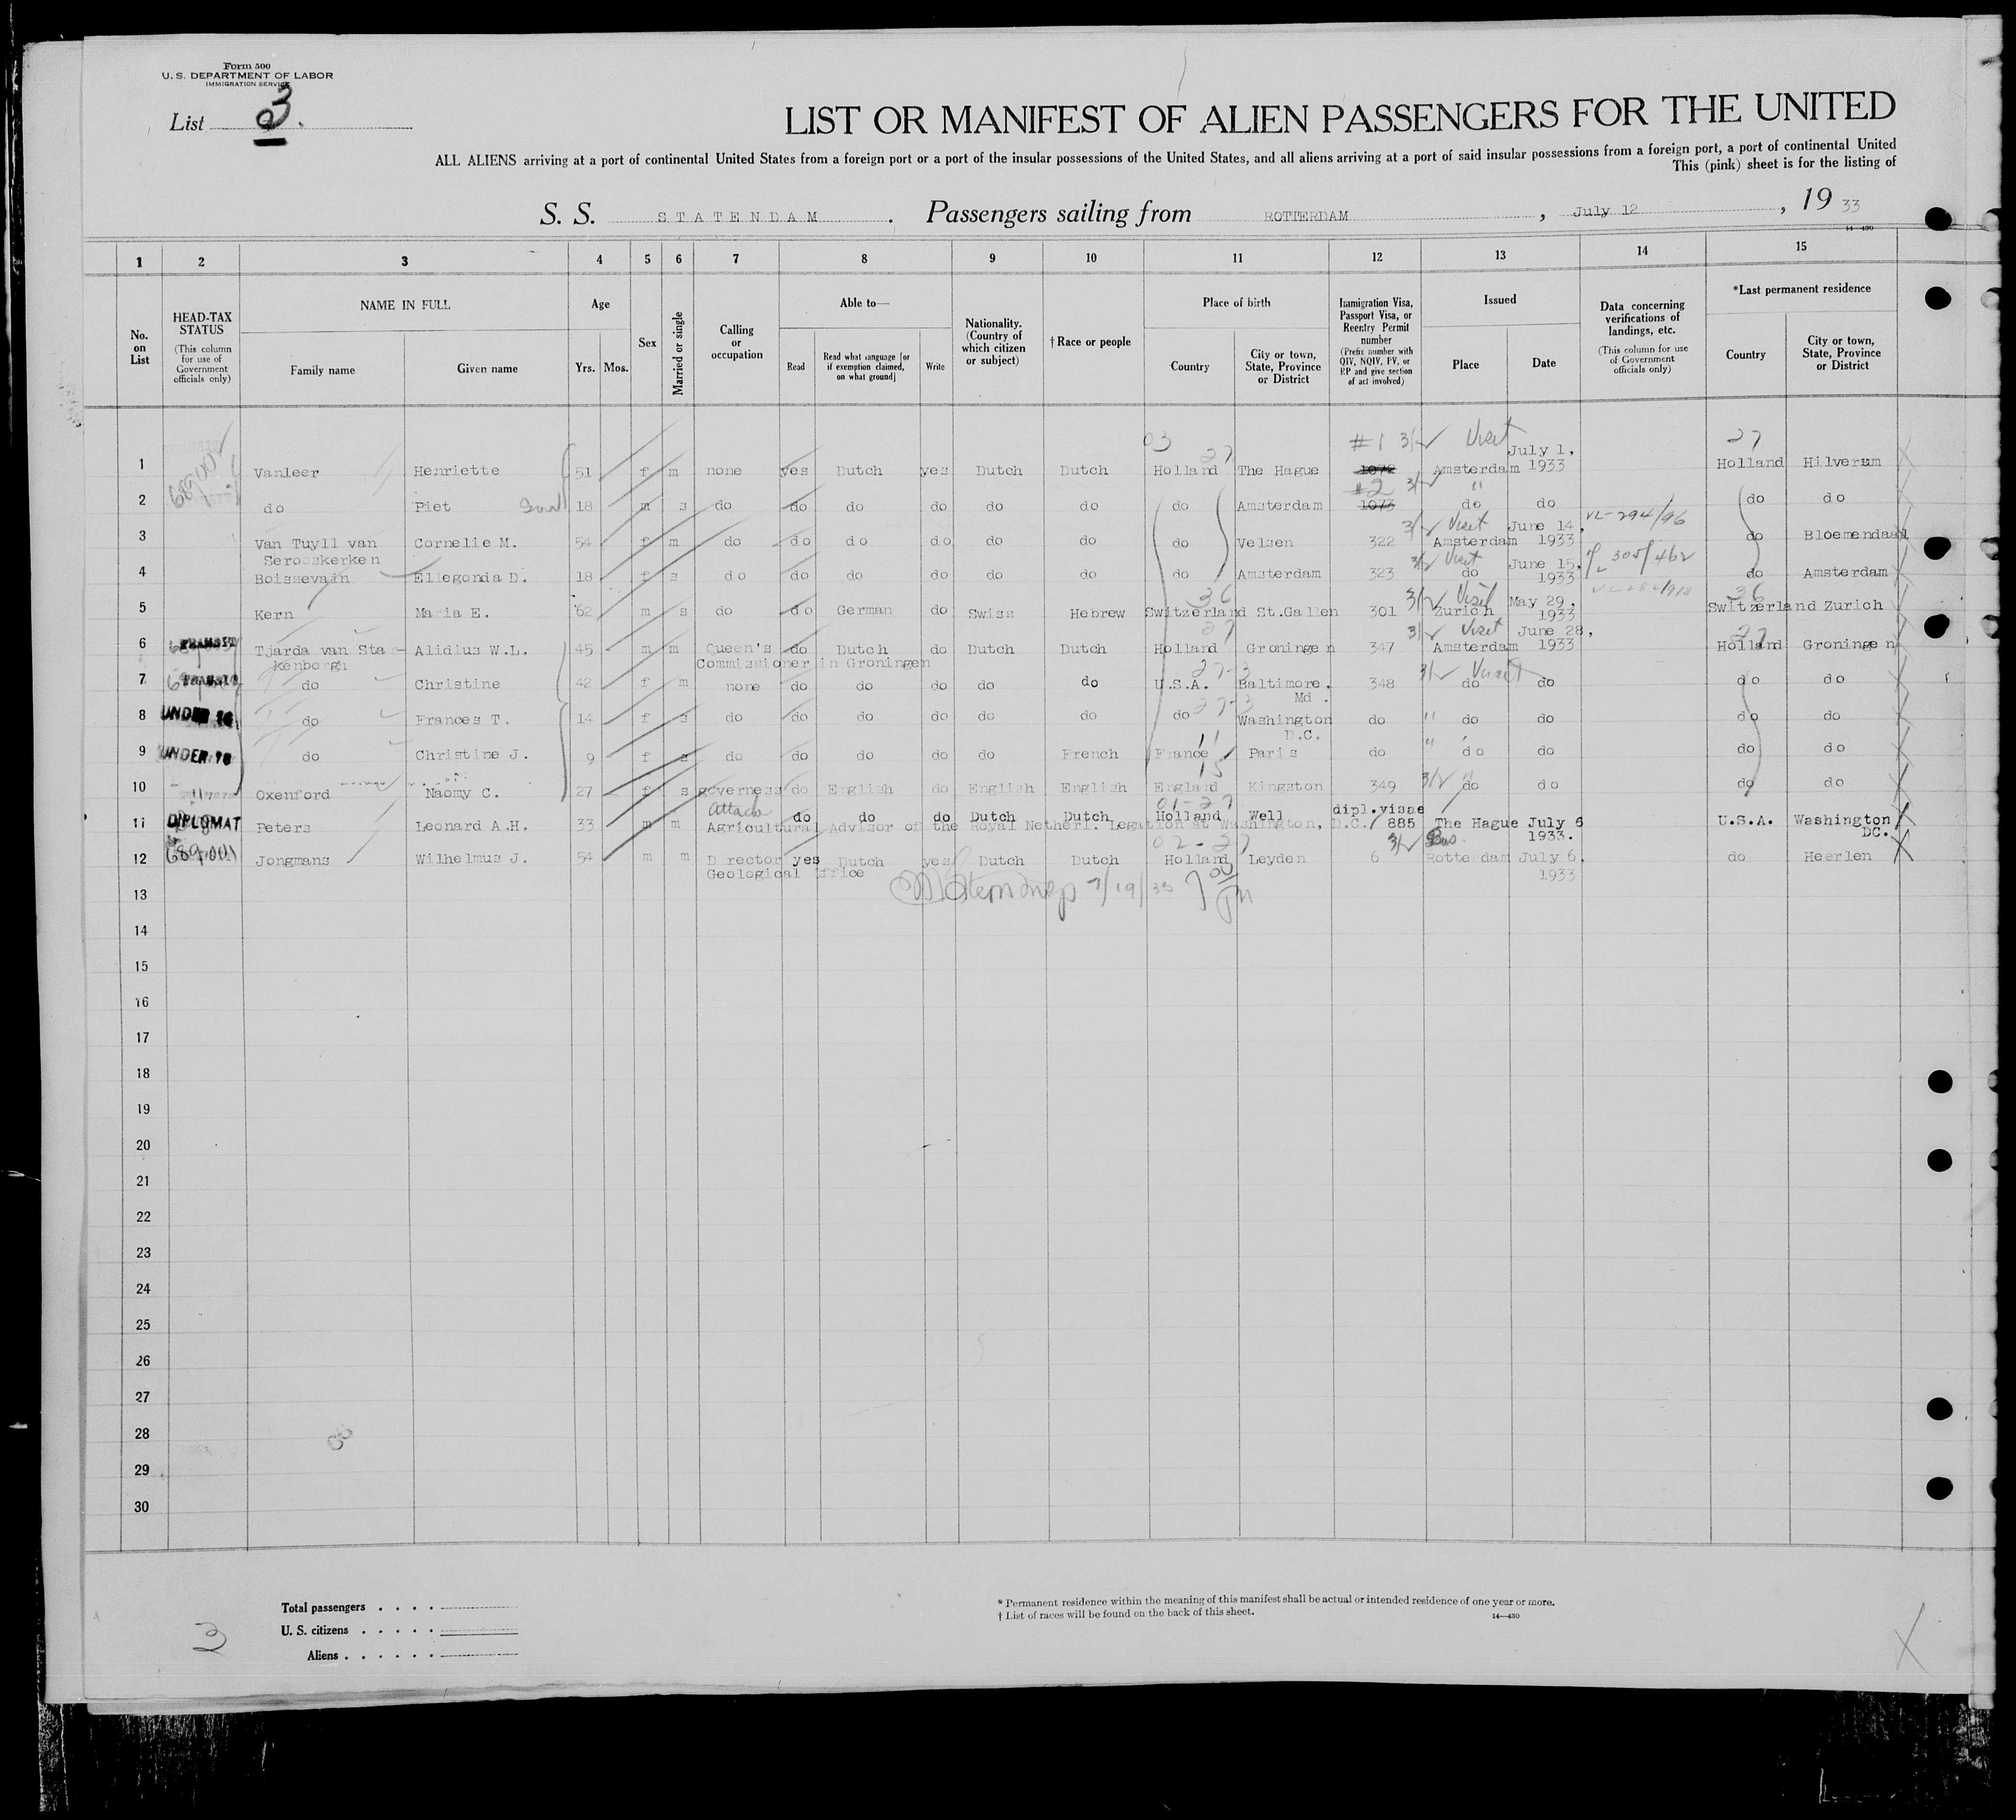 Form 500
U. S. DEPARTMENT OF LABOR
IMMIGRATION SERVICE
List 3.
LIST OR MANIFEST OF ALIEN PASSENGERS FOR THE UNITED
ALL ALIENS arriving at a port of continental United States from a foreign port or a port of the insular possessions of the United States, and all aliens arriving at a port of said insular possessions from a foreign port, a port of continental United
This (pink) sheet is for the listing of
S. S. STATENDAM . Passengers sailing from ROTTERDAM , July 12 , 19 33
14—430
1 2 3 4 5 6 7 8 9 10 11 12 13 14 15
No. on List
HEAD-TAX STATUS (This column for use of Government officials only)
NAME IN FULL
Family name Given name
Age
Yrs. Mos.
Sex
Married or single
Calling or occupation
Able to—
Read Read what language [or if exemption claimed, on what ground] Write
Nationality. (Country of which citizen or subject)
† Race or people
Place of birth
Country City or town, State, Province or District
Immigration Visa, Passport Visa, or Reentry Permit number (Prefix number with QIV, NQIV, PV, or RP and give section of act involved)
Issued
Place Date
Data concerning verifications of landings, etc. (This column for use of Government officials only)
*Last permanent residence
Country City or town, State, Province or District
03 27 #1 3/2 Visit 27
1 Vanleer Henriette 51 f m none yes Dutch yes Dutch Dutch Holland The Hague 1072 Amsterdam July 1, 1933 Holland Hilversum
#2 3/2 "
2 do Piet 18 m s do do do do do do do Amsterdam 1073 do do do do
3/2 Visit VL-294/96
3 Van Tuyll van Serooskerken Cornelie M. 54 f m do do do do do do do Velsen 322 Amsterdam June 14, 1933 do Bloemendaal
3/2 Visit 305/462
4 Boissevain Ellegonda D. 18 f s do do do do do do do Amsterdam 323 do June 15, 1933 do Amsterdam
36 3/2 Visit 36
5 Kern Maria E. 62 m s do do German do Swiss Hebrew Switzerland St.Gallen 301 Zurich May 29, 1933 Switzerland Zurich
27 3/2 Visit 27
6 TRANSIT Tjarda van Starkenborgh Alidius W.L. 45 m m Queen's Commissioner in Groningen do Dutch do Dutch Dutch Holland Groningen 347 Amsterdam June 28, 1933 Holland Groningen
27-3 3/2 Visit
7 TRANSIT do Christine 42 f m none do do do do do U.S.A. Baltimore, Md. 348 do do do do
27-3
8 UNDER 16 do Frances T. 14 f s do do do do do do do Washington D.C. do " do do do do
11
9 UNDER 16 do Christine J. 9 f s do do do do do French France Paris do " do do do do
15
10 Oxenford Naomy C. 27 f s governess do English do English English England Kingston 349 3/2 " do do do do
Attache 01-27
11 DIPLOMAT Peters Leonard A.H. 33 m m Agricultural Advisor of the Royal Netherl. Legation at Washington, D.C. do do do Dutch Dutch Holland Well dipl.visae 885 The Hague July 6 1933. U.S.A. Washington DC.
02-27 3/2 Bus.
12 689001 Jongmans Wilhelmus J. 54 m m Director Geological Office yes Dutch yes Dutch Dutch Holland Leyden 6 Rotterdam July 6, 1933 do Heerlen
7/19/33
13
14
15
16
17
18
19
20
21
22
23
24
25
26
27
28
29
30
Total passengers . . . .
U. S. citizens . . . . .
Aliens . . . . . .
3
* Permanent residence within the meaning of this manifest shall be actual or intended residence of one year or more.
† List of races will be found on the back of this sheet.
14—430